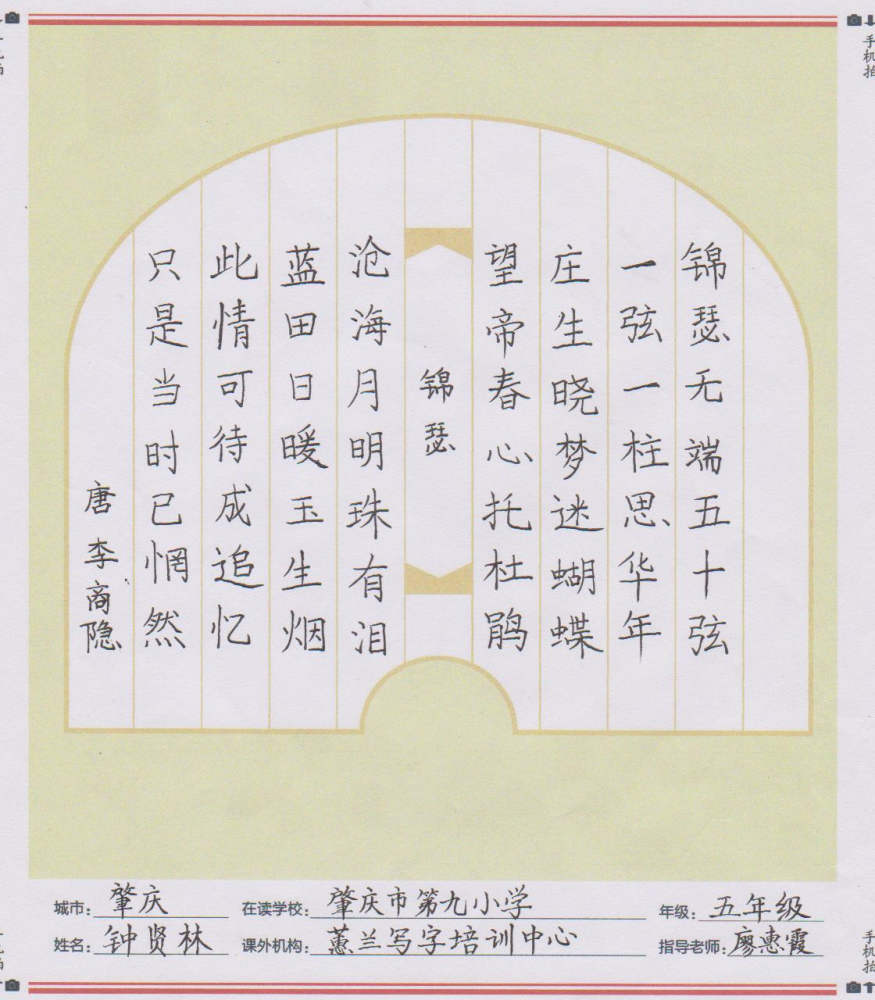 锦瑟无端五十弦
一弦一柱思华年
庄生晓梦迷蝴蝶
望帝春心托杜鹃
锦瑟
沧海月明珠有泪
蓝田日暖玉生烟
此情可待成追忆
只是当时已惘然
唐 李商隐
城市：肇庆 在读学校：肇庆市第九小学 年级：五年级
姓名：钟贤林 课外机构：蕙兰写字培训中心 指导老师：廖惠霞
手机拍
手机拍